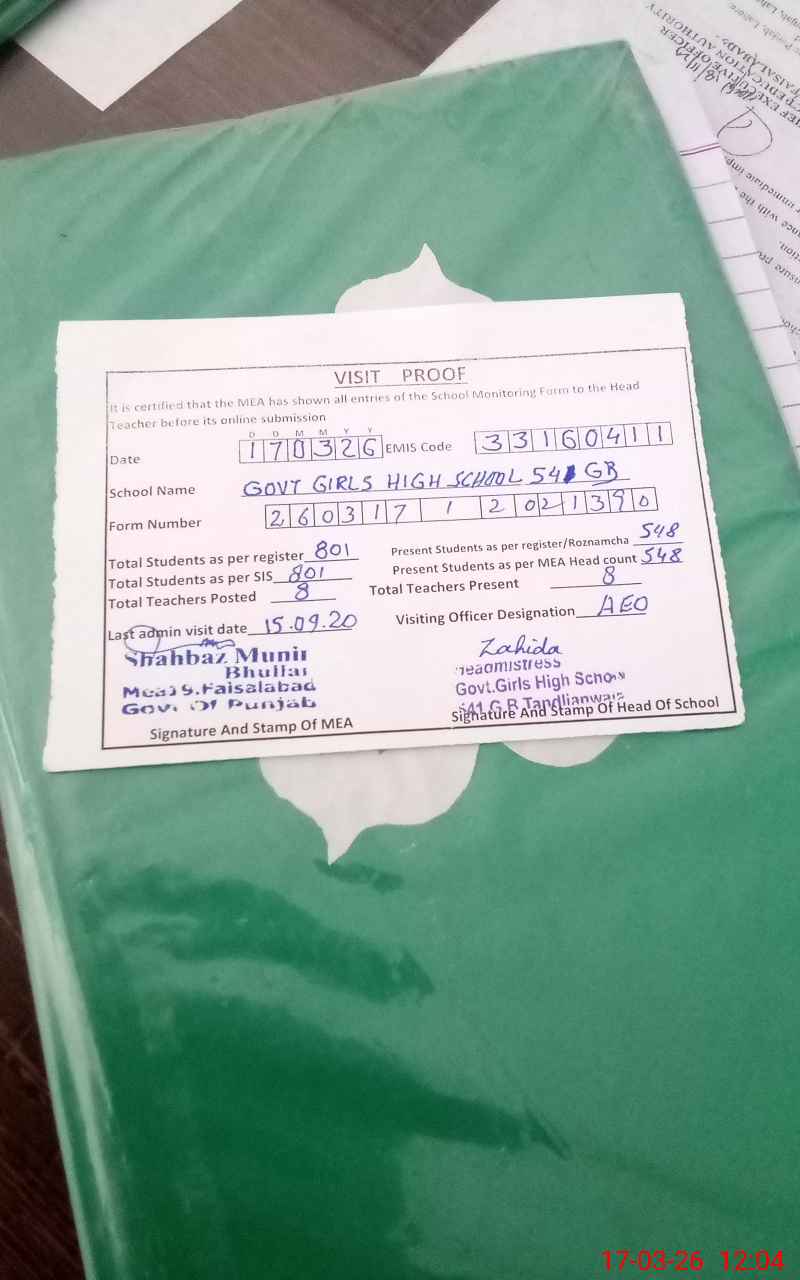 Punjab, Lahore
CHIEF EXECUTIVE OFFICER
EDUCATION AUTHORITY
FAISALABAD
immediate
with the
VISIT PROOF
It is certified that the MEA has shown all entries of the School Monitoring Form to the Head
Teacher before its online submission
D D M M Y Y
Date 170326 EMIS Code 33160411
School Name GOVT GIRLS HIGH SCHOOL 541 GB
Form Number 260317 1 2 02 1390
Total Students as per register 801 Present Students as per register/Roznamcha 548
Total Students as per SIS 801 Present Students as per MEA Head count 548
Total Teachers Posted 8 Total Teachers Present 8
Last admin visit date 15.09.20 Visiting Officer Designation AEO
Shahbaz Munir
Bhullar
Faisalabad
Gov. Of Punjab
Signature And Stamp Of MEA
Zahida
Headmistress
Govt.Girls High School
541 G.B Tandlianwala
Signature And Stamp Of Head Of School
17-03-26 12:04